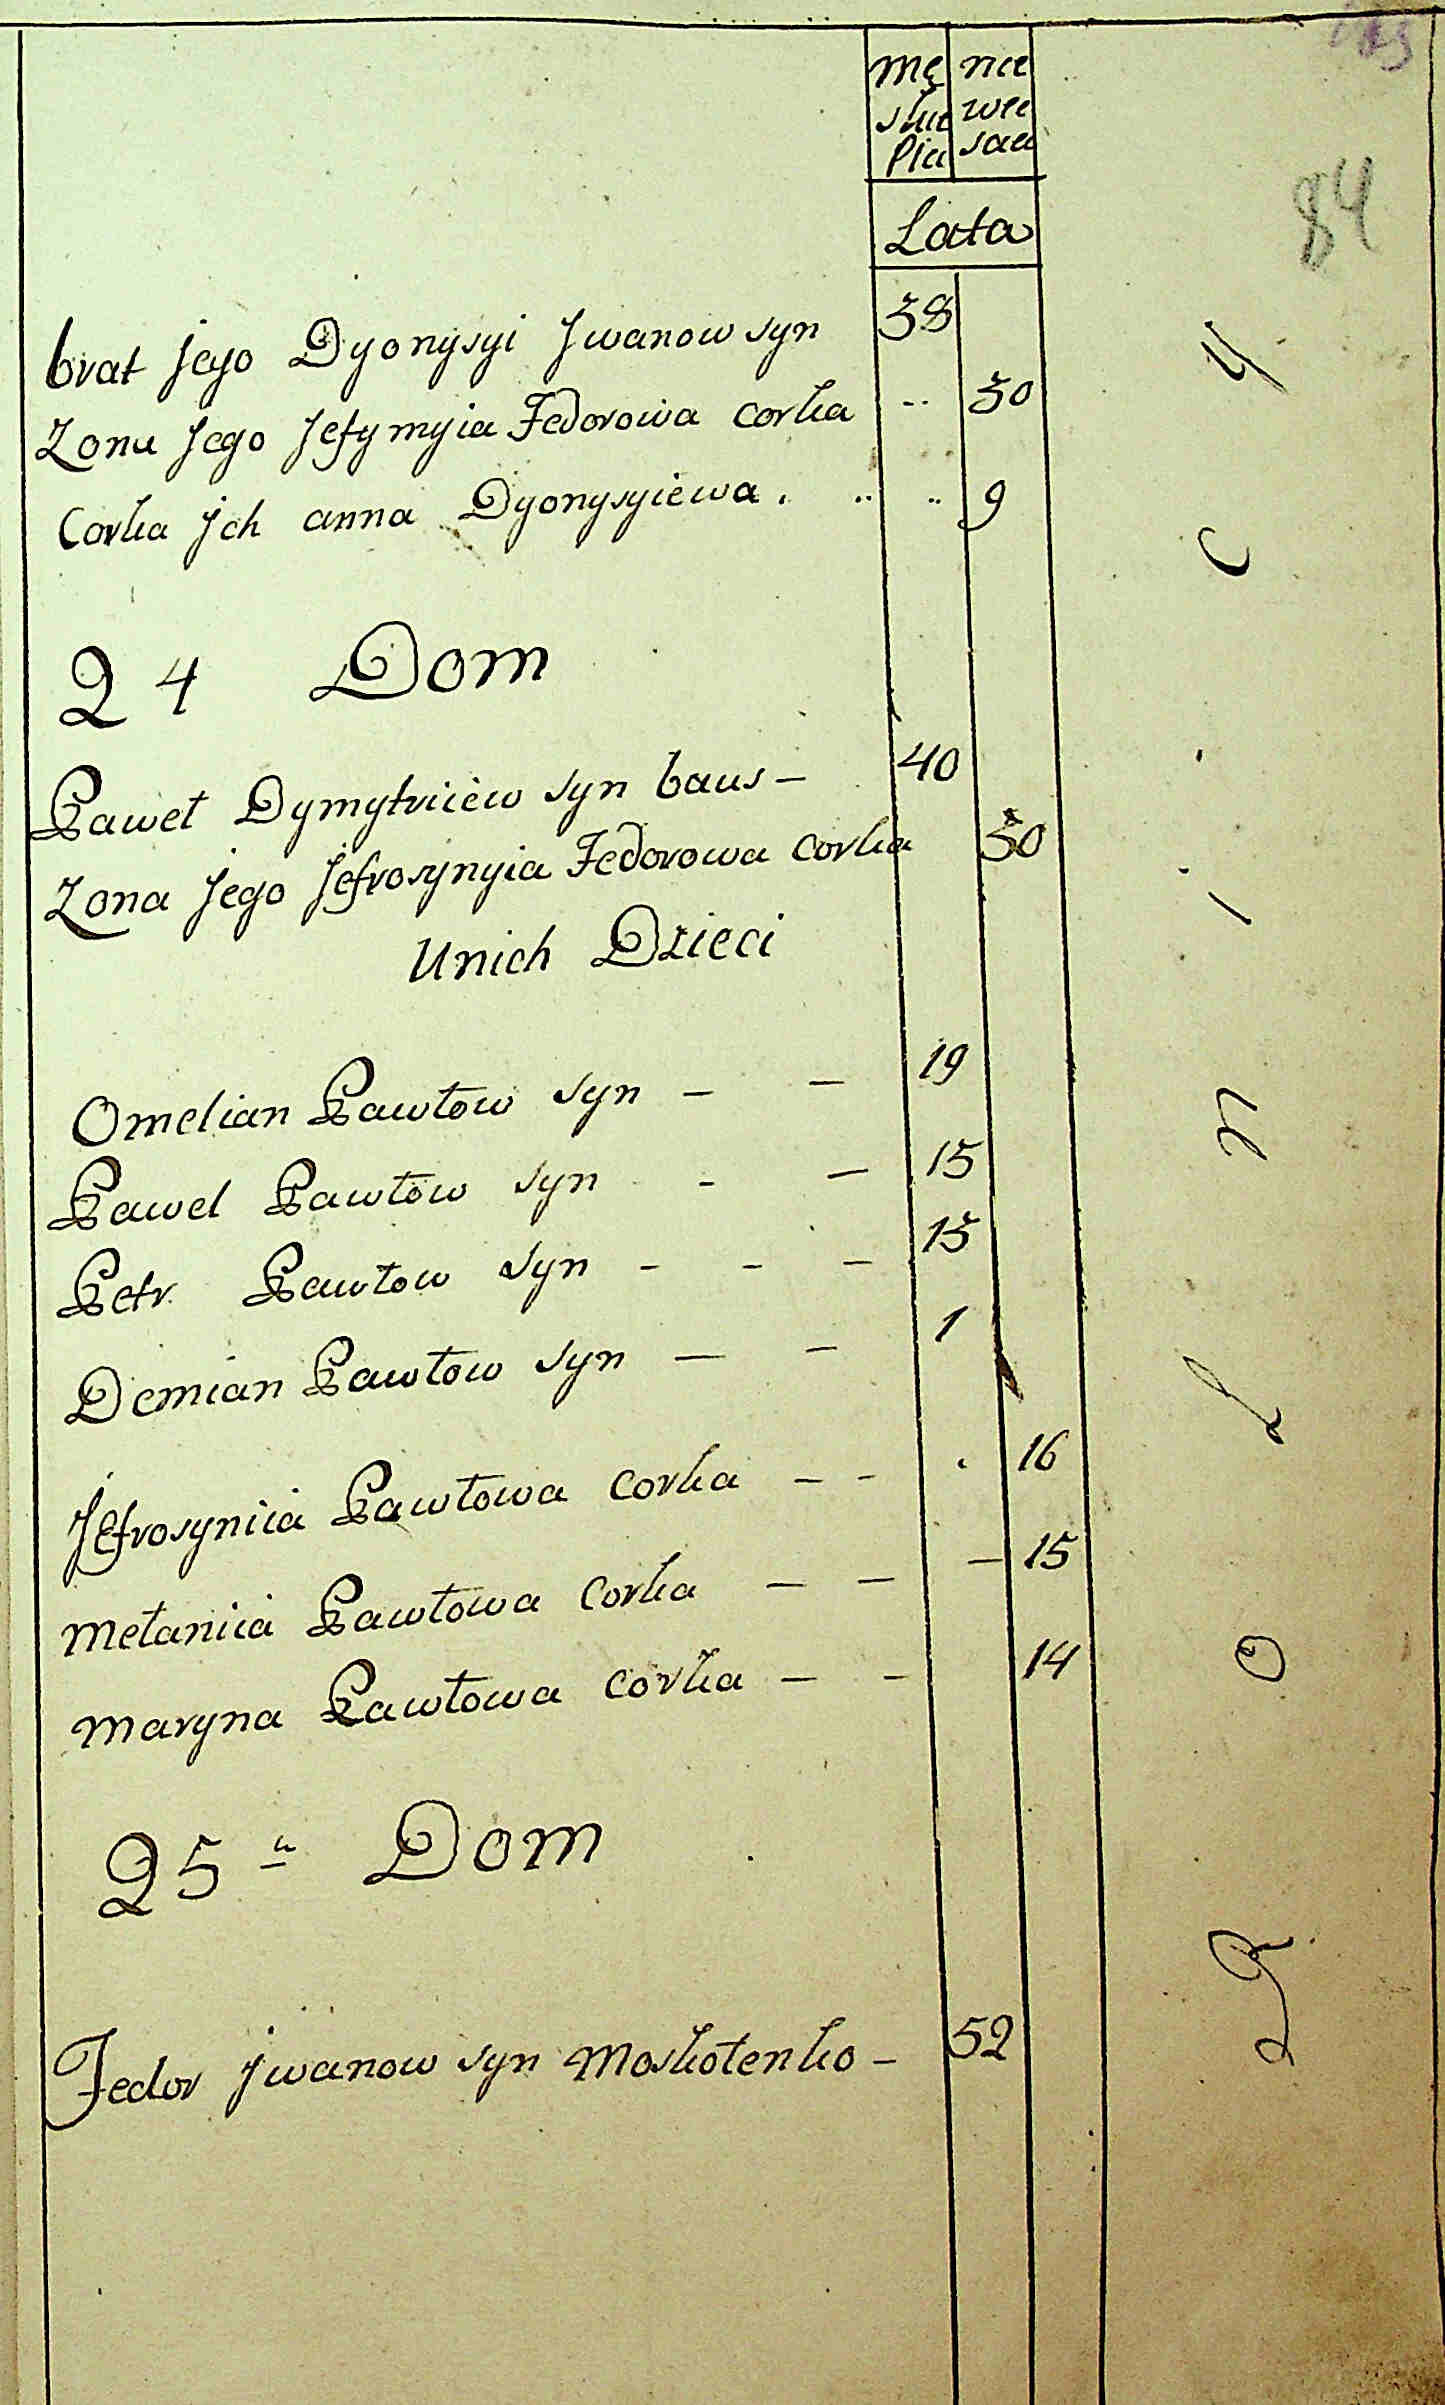 mę nie
skie wie
Płu saa
Lata
84
brat Jego Dyonysyi Jwanow syn 38
Zona Jego Jefymyia Fedorowa corka .. 30
Corka Jch anna Dyonysyiewa . .. .. 9
24 Dom
Paweł Dymytriiew syn baus — 40
Zona Jego Jefrosynyia Fedorowa corka 30
Unich Dzieci
Omelian Pawłow syn — — 19
Pawel Pawłow syn - — 15
Petr Pawłow syn - - — 13
Demian Pawłow syn — — 1
Jefrosyniia Pawłowa corka — - . 16
Mełaniia Pawłowa corka — — — 15
Maryna Pawłowa corka — - 14
25 Dom
Fedor Jwanow syn Moskotenko — 52
Rolnicy